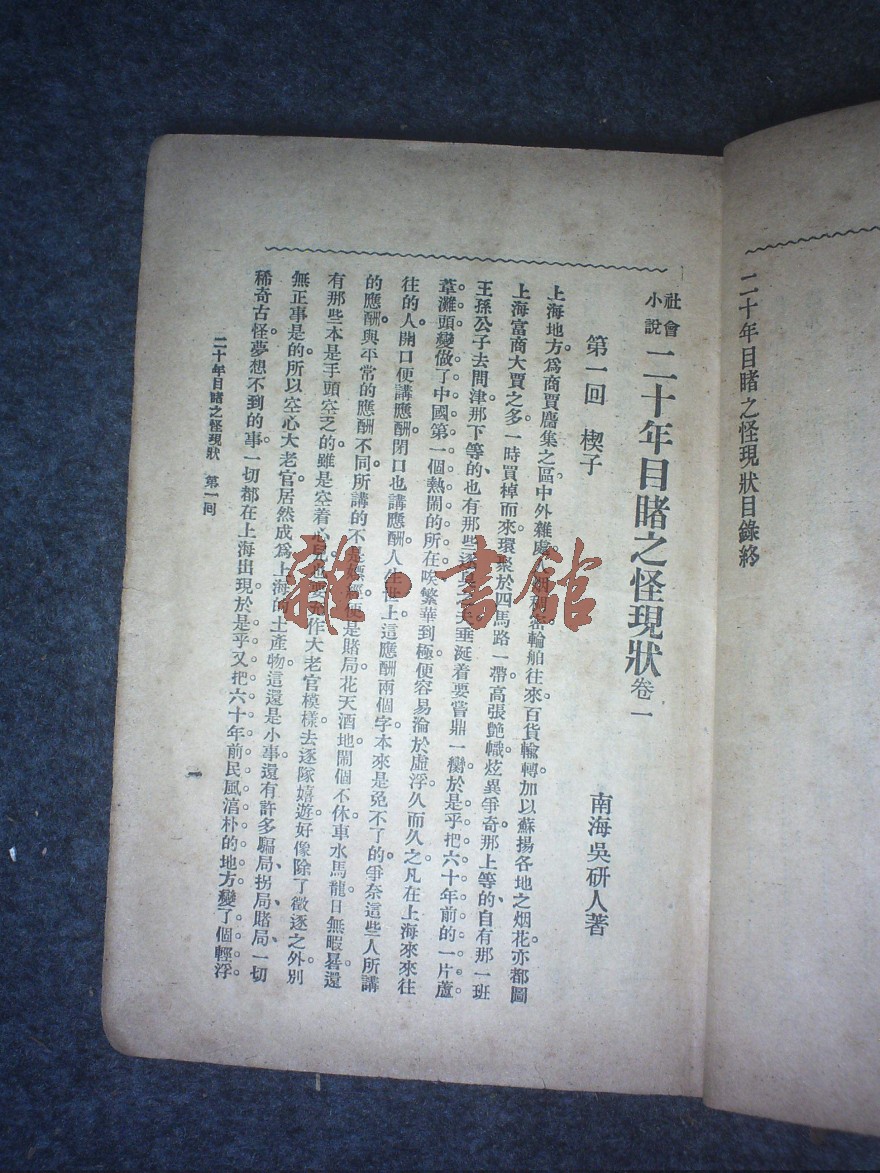 二十年目睹之怪現狀目錄終
社會
小說
二十年目睹之怪現狀卷一
第一回 楔子
南海吳研人著
上海地方。爲商賈麕集之區。中外雜處。人烟稠密。輪舶往來。百貨輸轉。加以蘇揚各地之烟花。亦都圖
上海富商大賈之多。一時買棹而來。環聚於四馬路一帶。高張艷幟。炫異爭奇。那上等的、自有那一班
王孫公子去問津。那下等的、也有那些逐臭之夫。垂涎着要嘗鼎一臠。於是乎把六十年前的一片蘆
葦灘頭。變做了中國第一個熱鬧的所在。唉。繁華到極。便容易淪於虛浮。久而久之。凡在上海來來往
往的人。開口便講應酬。閉口也講應酬。人生世上。這應酬兩個字。本來是免不了的。爭奈這些人所講
的應酬。與平常的應酬不同。所講的不是嫖經。便是賭局。花天酒地。鬧個不休。車水馬龍。日無暇晷。還
有那些本是手頭空乏的。雖是空着心兒。也要充作大老官模樣。去逐隊嬉遊。好像除了徵逐之外。別
無正事是的。所以空心大老官。居然成爲上海的土產物。這還是小事。還有許多騙局、拐局、賭局、一切
稀奇古怪。夢想不到的事。一切都在上海出現。於是乎又把六十年前民風淳朴的地方。變了個輕浮
二十年目睹之怪現狀 第一回
一
雜·書館